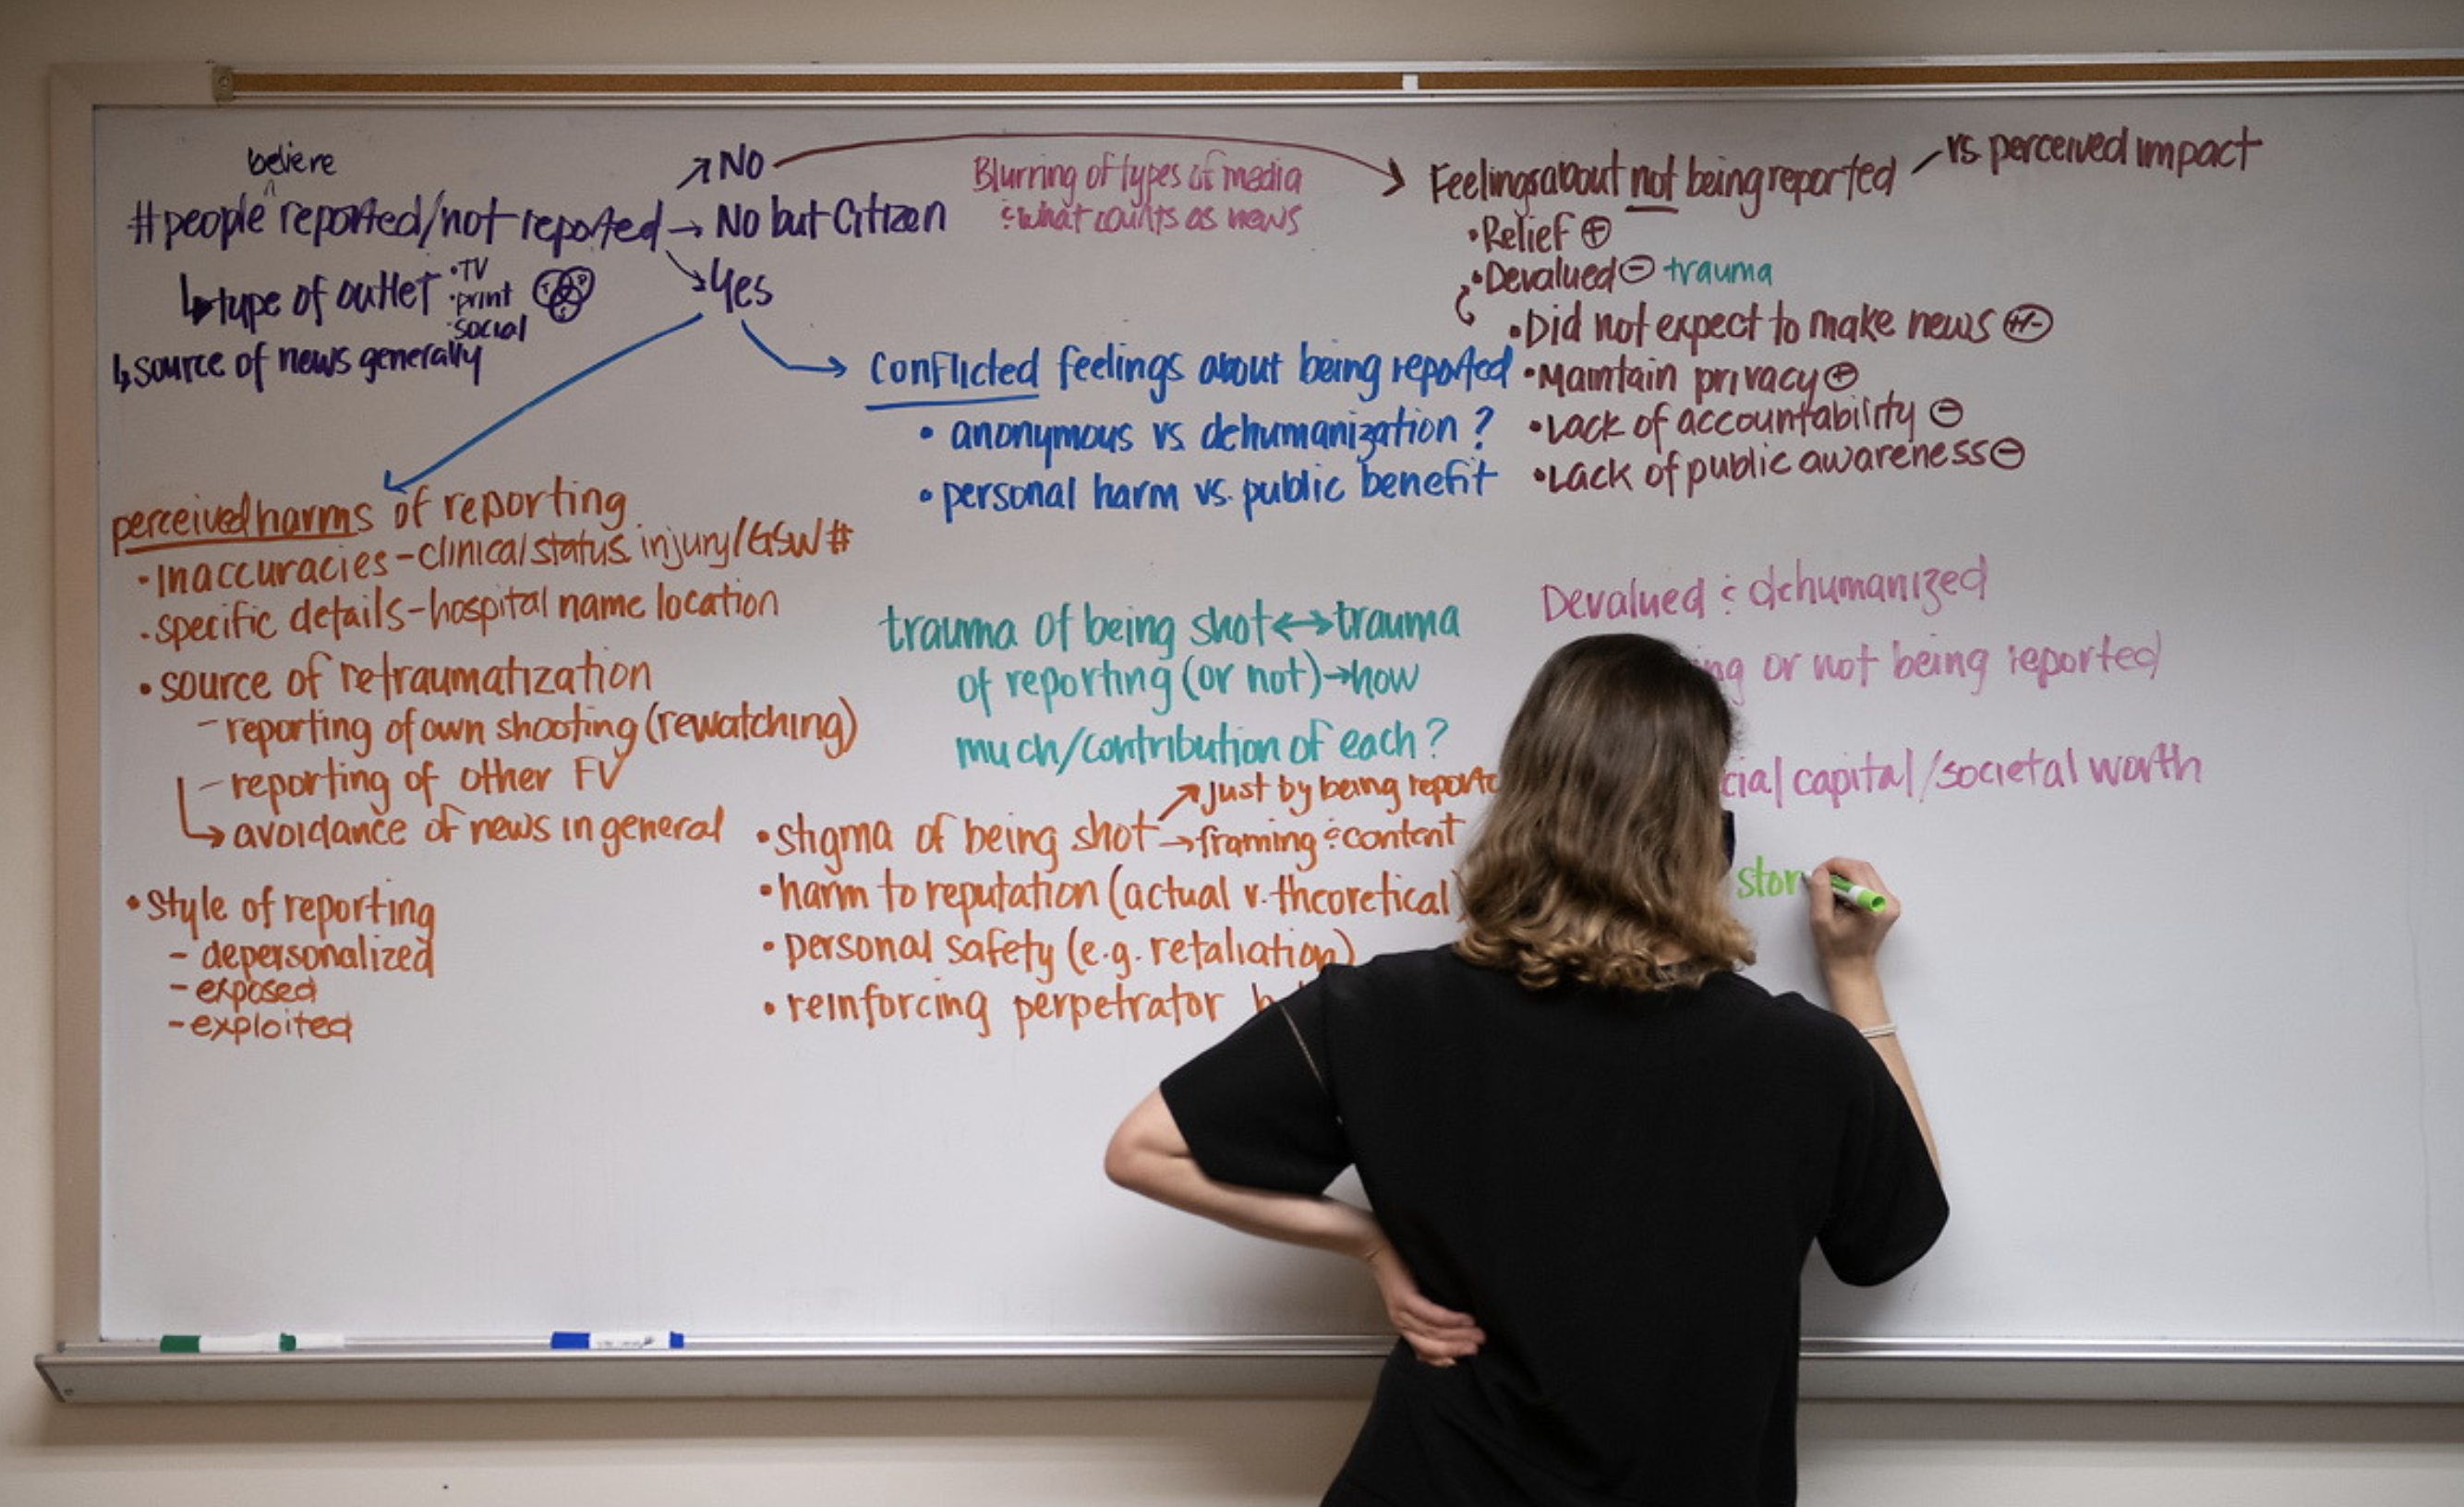 believe
# people ^ reported/not reported
↗ No
→ No but Citizen
↘ Yes
↳ type of outlet
• TV
• print
• social
↳ source of news generally
Blurring of types of media
& what counts as news
Feelings about not being reported
vs perceived impact
• Relief ⊕
• Devalued ⊖ trauma
• Did not expect to make news +/-
• Maintain privacy ⊕
• Lack of accountability ⊖
• Lack of public awareness ⊖
Conflicted feelings about being reported
• anonymous vs dehumanization?
• personal harm vs. public benefit
perceived harms of reporting
• Inaccuracies - clinical status injury/GSW #
• specific details - hospital name location
• source of retraumatization
- reporting of own shooting (rewatching)
- reporting of other FV
↳ avoidance of news in general
• Style of reporting
- depersonalized
- exposed
- exploited
trauma of being shot ↔ trauma
of reporting (or not) → how
much/contribution of each?
• stigma of being shot
↗ just by being
→ framing & content
• harm to reputation (actual v. theoretical)
• personal safety (e.g. retaliation)
• reinforcing perpetrator
Devalued & dehumanized
or not being reported
capital/societal worth
stor